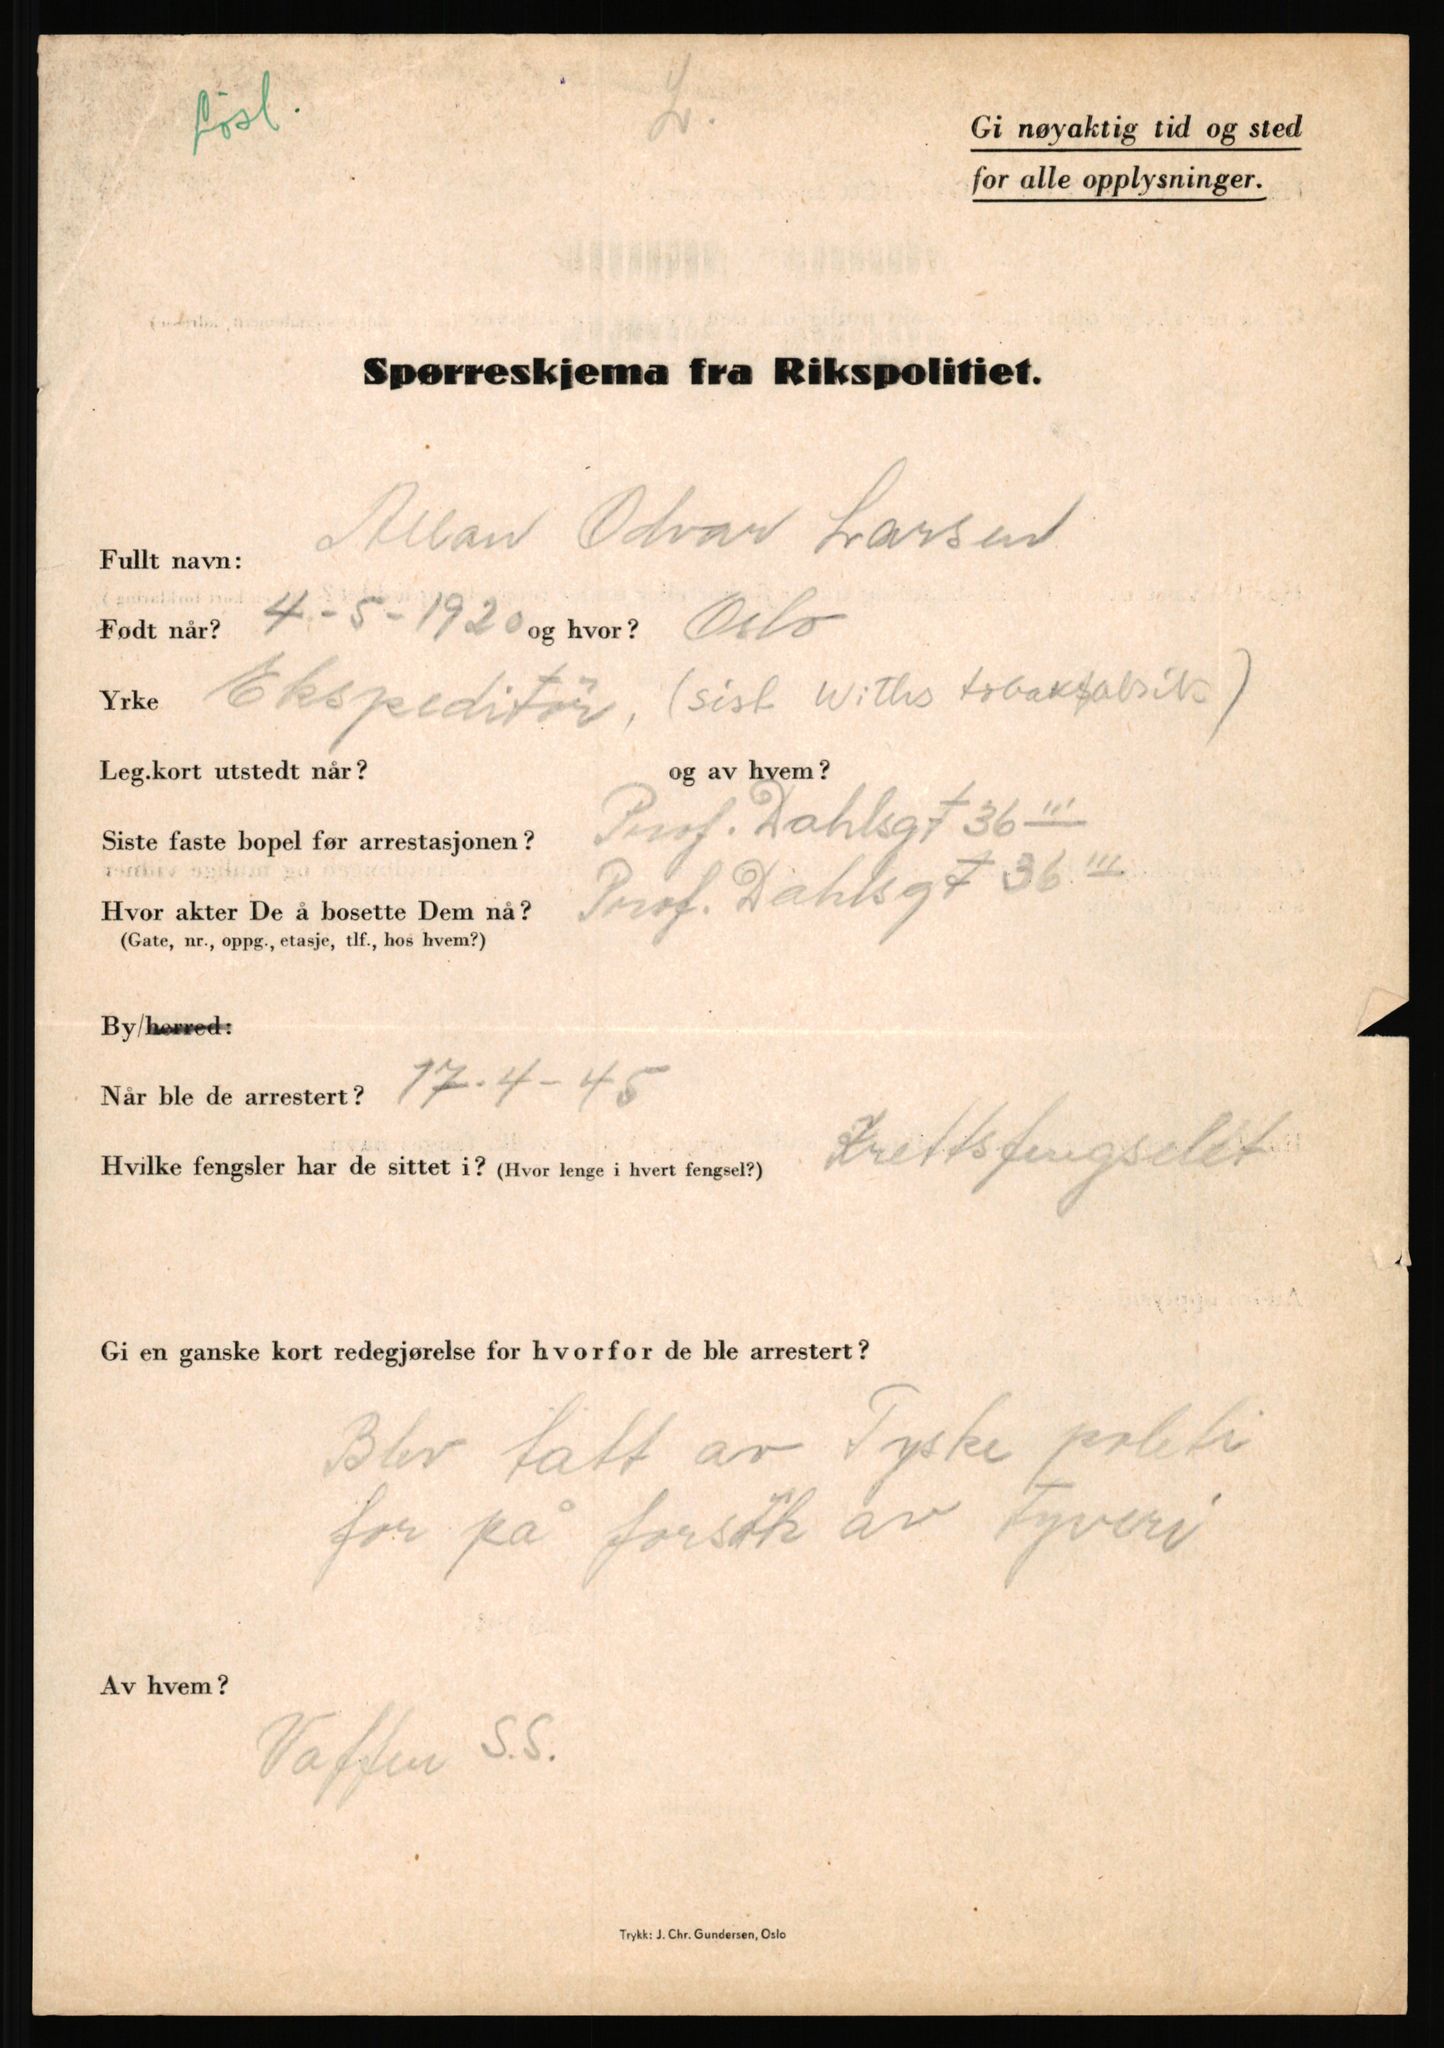 løsl.
L.
Gi nøyaktig tid og sted
for alle opplysninger.
Spørreskjema fra Rikspolitiet.
Fullt navn: Allan Odvar Larsen
Født når? 4-5-1920 og hvor? Oslo
Yrke Ekspeditör, (sist Withs tobakfabrik)
Leg.kort utstedt når? og av hvem?
Siste faste bopel før arrestasjonen? Prof. Dahlsgt 36 III
Hvor akter De å bosette Dem nå? Prof. Dahlsgt 36 III
(Gate, nr., oppg., etasje, tlf., hos hvem?)
By/herred:
Når ble de arrestert? 17-4-45
Hvilke fengsler har de sittet i? (Hvor lenge i hvert fengsel?) Krettsfengselet
Gi en ganske kort redegjørelse for hvorfor de ble arrestert?
Blev tatt av Tyske politi
for på forsök av Tyveri
Av hvem?
Vaffen S.S.
Trykk: J. Chr. Gundersen, Oslo